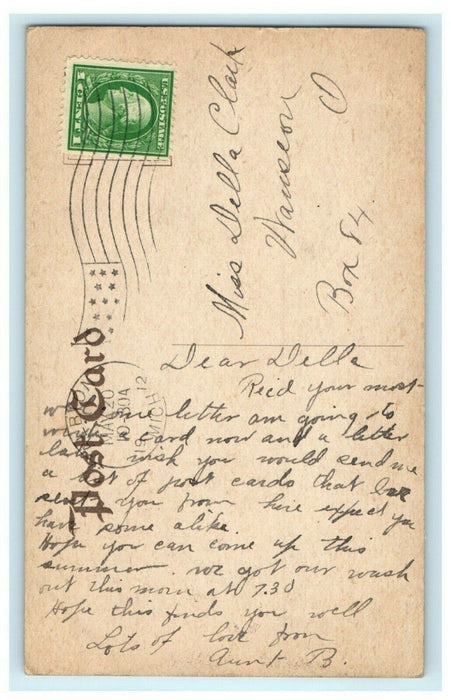 U.S. POSTAGE
1 CENT 1
Miss Della Clark
Wauseon
Box 84. O
Post Card
MAY 20
10-30A
1912
MICH.
Dear Della
Recd your most
welcome letter am going to
write card now and a letter
later wish you would send me
a lot of post cards that have
sent you from here expect you
have some alike
Hope you can come up this
summer. we got our wash
out this morn at 7.30
Hope this finds you well
Lots of love from
Aunt B.